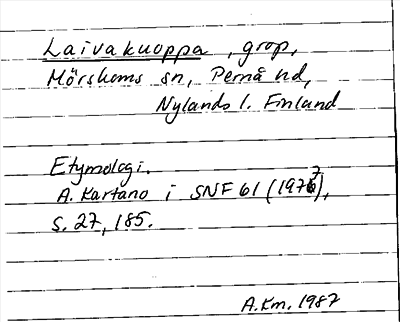 Laivakuoppa, grop,
Mörskoms sn, Pernå hd,
Nylands l. Finland
Etymologi.
A. Kartano i SNF 61 (1977),
s. 27, 185.
A.Km. 1987